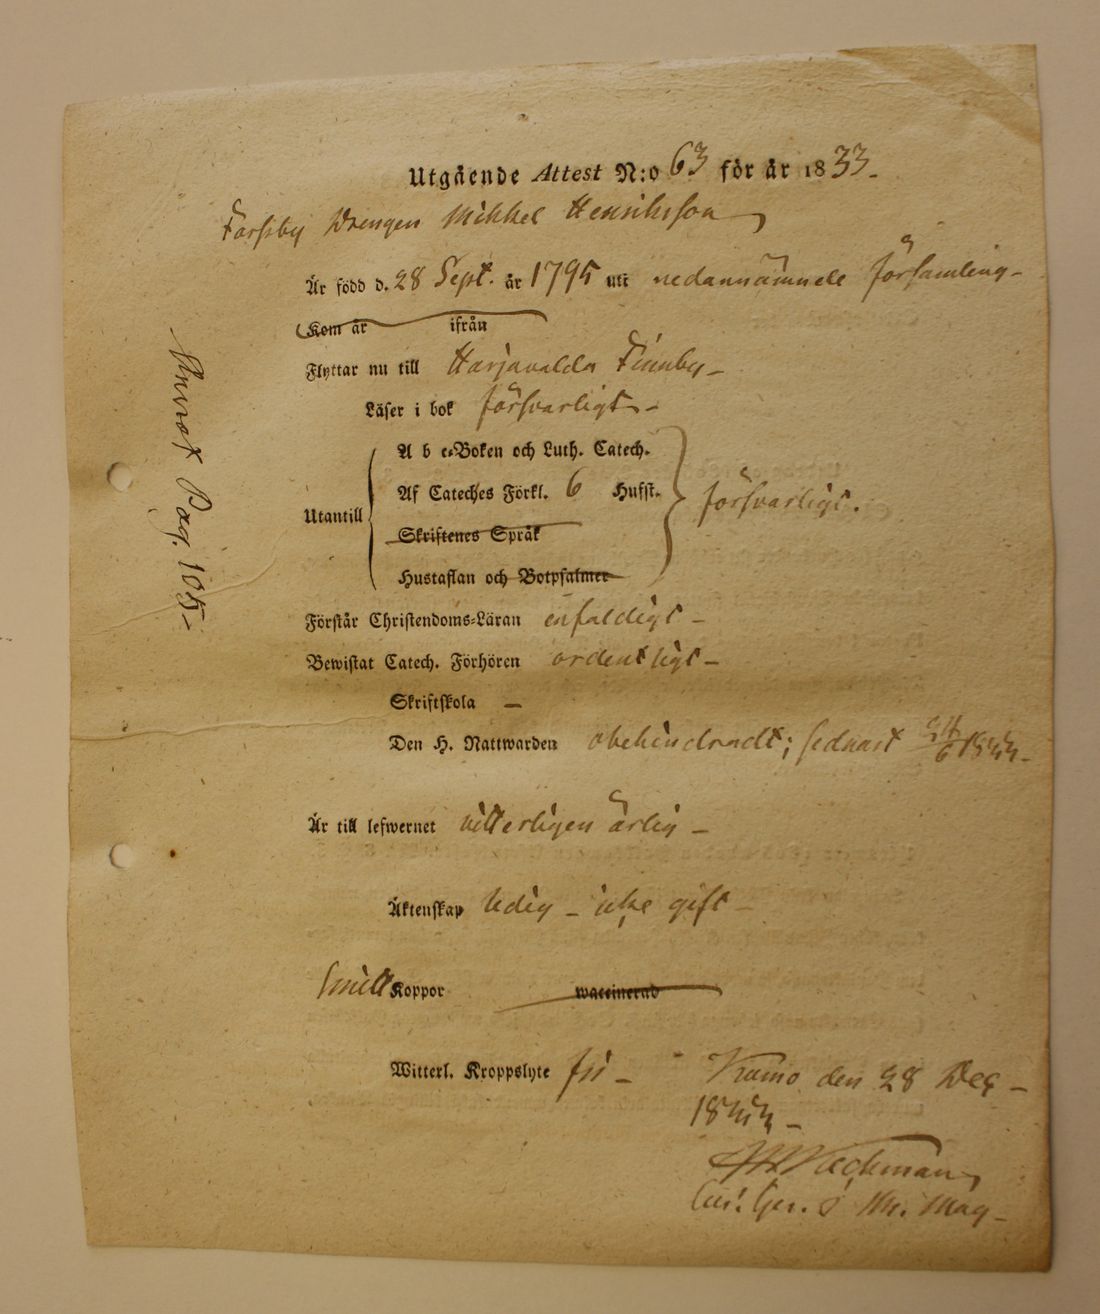 Utgående Attest N:o 63 för år 1833.
Forsby Drengen Mikkel Henriksson
Är född d. 28 Sept. år 1795 uti nedannämnde församling
Kom år ifrån
Flyttar nu till Harjavalda Finnby
Läser i bok försvarligt
A b c-Boken och Luth. Catech.
Af Cateches Förkl. 6 Hufst.
Utantill försvarligt.
Skriftenes Språk
Hustaflan och Botpsalmer
Förstår Christendoms-Läran enfaldigt
Bewistat Catech. Förhören ordentligt
Skriftskola —
Den H. Nattwarden obehindradt; sednast 24/6 1833
Är till lefwernet vitterligen ärlig
Äktenskap ledig - icke gift
Koppor waccinerad
Witterl. Kroppslyte fri
Kumo den 28 Dec
1833
Pag. 105